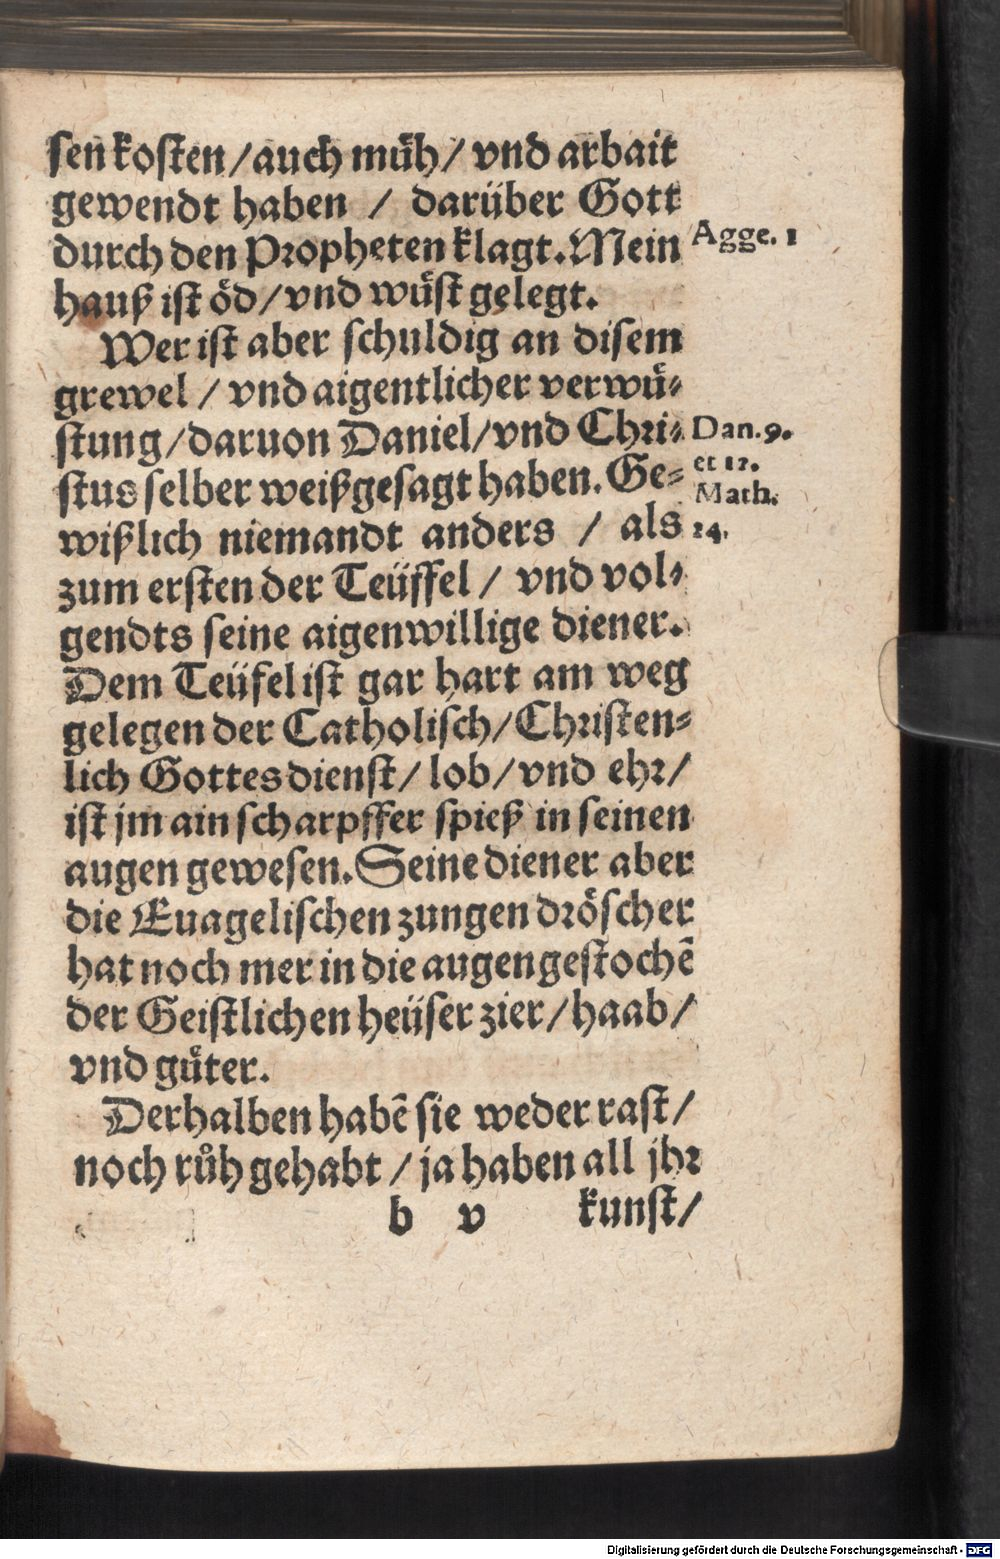 sen kosten / auch müh / vnd arbait
gewendt haben / darüber Gott
durch den Propheten klagt. Mein
Agge. 1
hauß ist öd / vnd wüst gelegt.
Wer ist aber schuldig an disem
grewel / vnd aigentlicher verwü⸗
stung / daruon Daniel / vnd Chri⸗
Dan. 9.
stus selber weißgesagt haben. Ge⸗
et 12.
Math.
wißlich niemandt anders / als
24.
zum ersten der Teüffel / vnd vol⸗
gendts seine aigenwillige diener.
Dem Teüfel ist gar hart am weg
gelegen der Catholisch / Christen⸗
lich Gottesdienst / lob / vnd ehr /
ist jm ain scharpffer spieß in seinen
augen gewesen. Seine diener aber
die Euagelischen zungen dröscher
hat noch mer in die augen gestochẽ
der Geistlichen heüser zier / haab /
vnd güter.
Derhalben habẽ sie weder rast /
noch růh gehabt / ja haben all jhr
b v kunst /
Digitalisierung gefördert durch die Deutsche Forschungsgemeinschaft - DFG